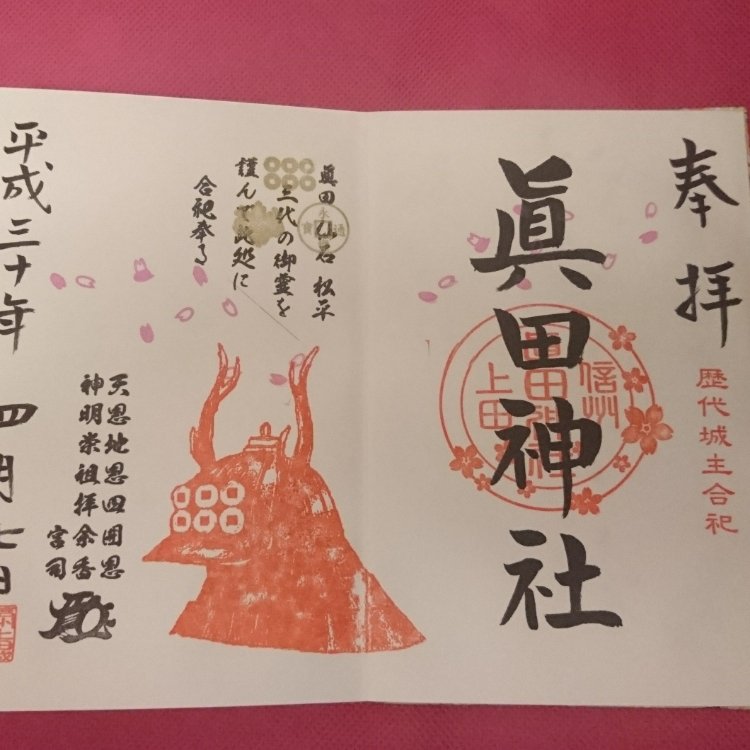 奉拝
歴代城主合祀
眞田神社
信州
眞田神社
上田
眞田 仙石 松平
三代の御霊を
謹んで此処に
合祀奉る
天恩地恩四囲恩
神明崇祖拝余香
宮司
平成三十年 四月七日